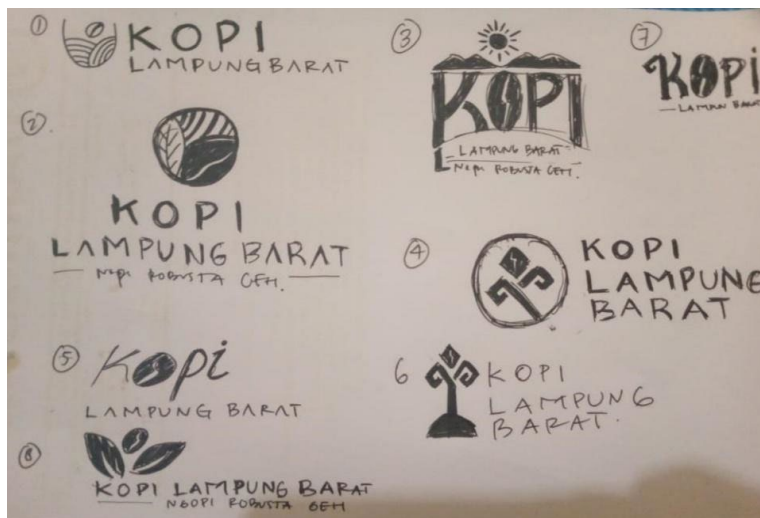 1 KOPI
LAMPUNG BARAT
2. KOPI
LAMPUNG BARAT
NGOPI ROBUSTA GEH.
3 KOPI
LAMPUNG BARAT
NGOPI ROBUSTA GEH.
7 KOPI
4 KOPI
LAMPUNG
BARAT
5 Kopi
LAMPUNG BARAT
6 KOPI
LAMPUNG
BARAT.
8 KOPI LAMPUNG BARAT
NGOPI ROBUSTA GEH